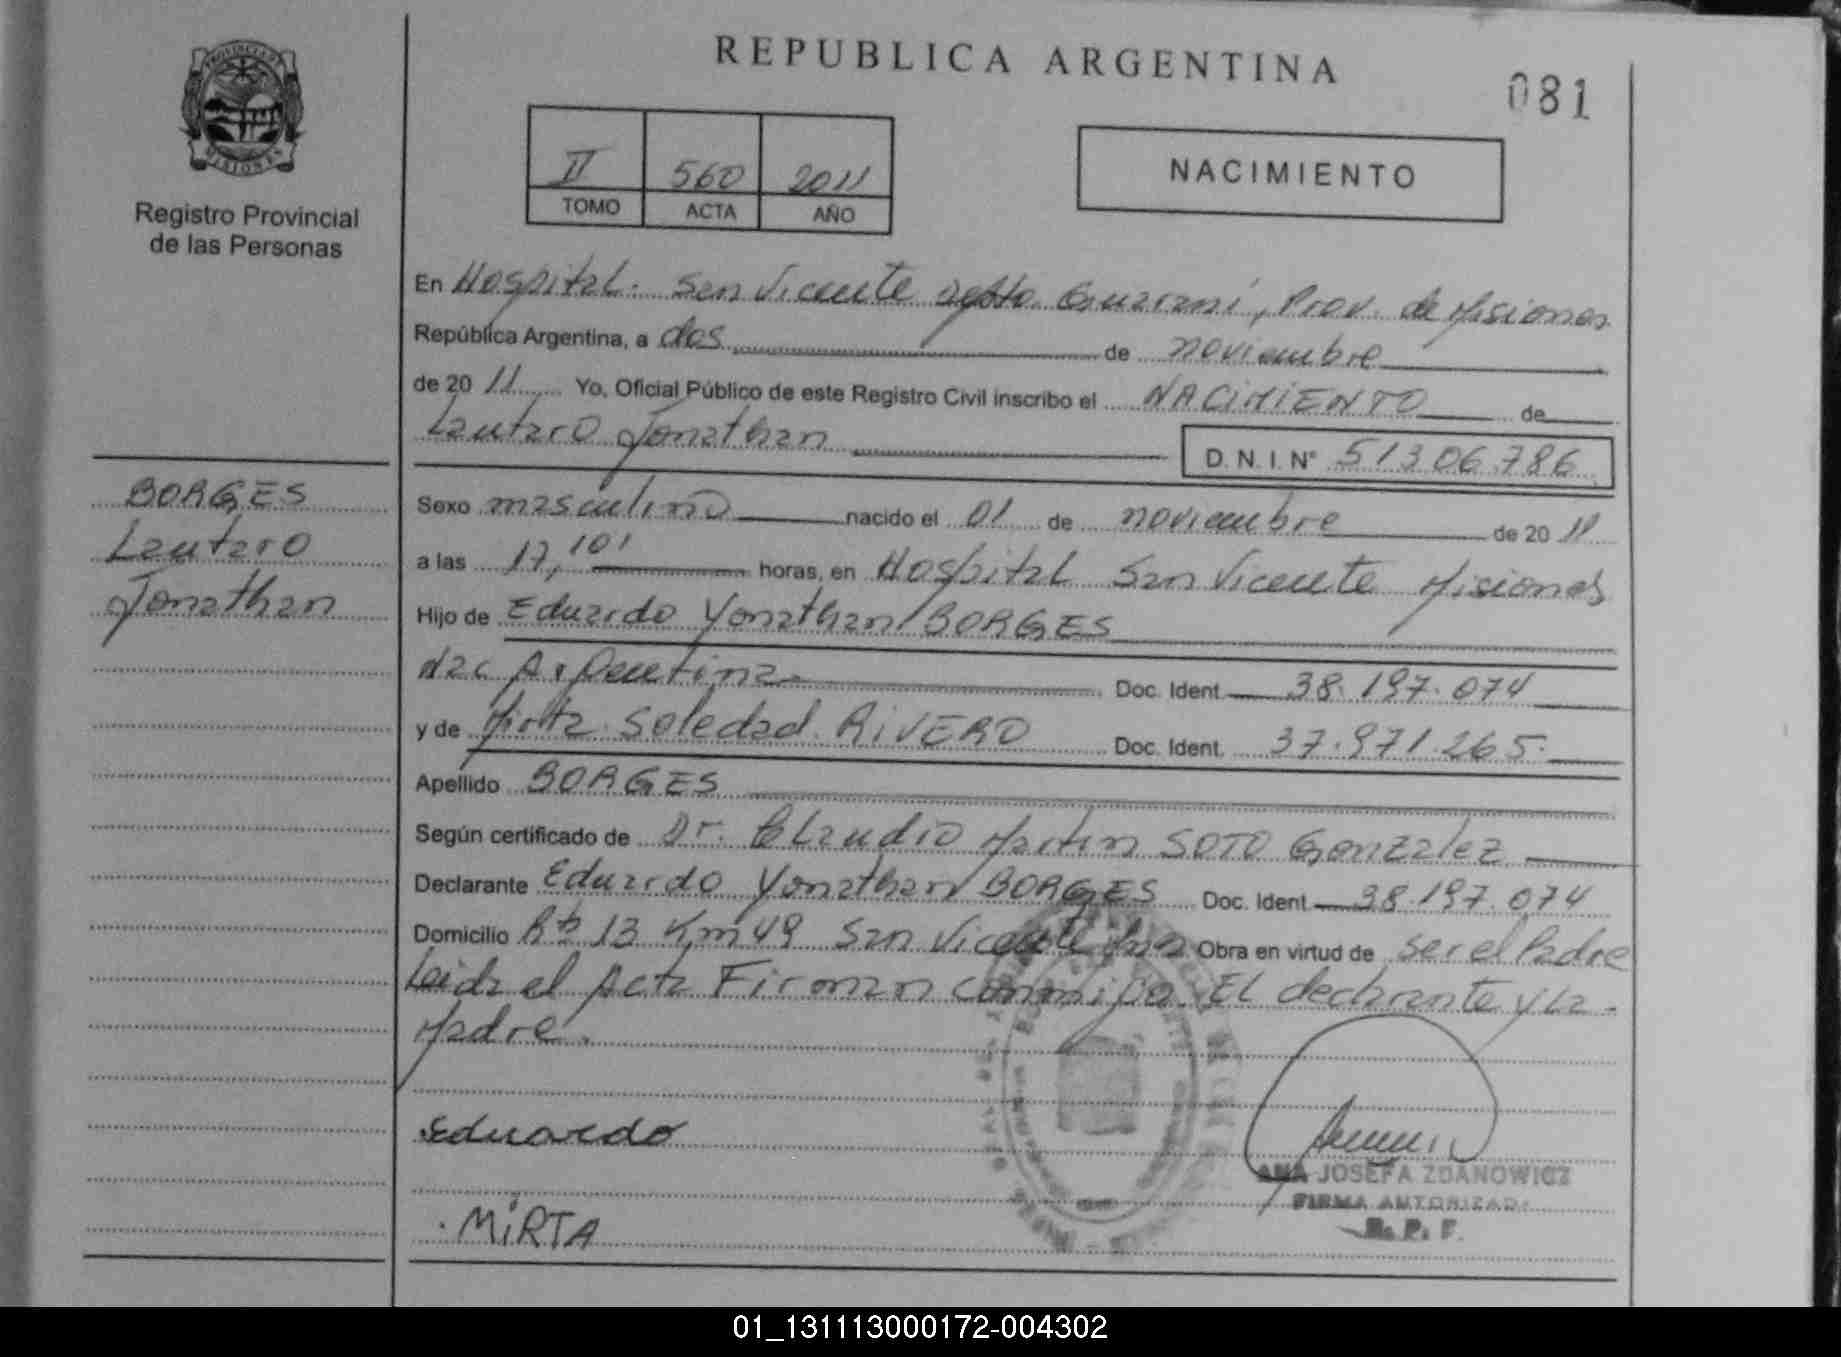 REPUBLICA ARGENTINA
081
PROVINCIA DE MISIONES
Registro Provincial
de las Personas
II 560 2011
TOMO ACTA AÑO
NACIMIENTO
En Hospital. San Vicente Dpto. Guaraní, Prov. de Misiones
República Argentina, a dos de noviembre
de 20 11 Yo, Oficial Público de este Registro Civil inscribo el NACIMIENTO de
Lautaro Jonathan
D. N. I. N° 51306.786
BORGES
Lautaro
Jonathan
Sexo masculino nacido el 01 de noviembre de 20 11
a las 17,10' horas, en Hospital San Vicente Misiones
Hijo de Eduardo Yonathan BORGES
Nac Argentina Doc. Ident. 38.197.074
y de Mirta Soledad RIVERO Doc. Ident. 37.971.265
Apellido BORGES
Según certificado de Dr. Claudio Martin SOTO Gonzalez
Declarante Eduardo Yonathan BORGES Doc. Ident. 38.197.074
Domicilio Rta 13 Km 49 San Vicente Mnes Obra en virtud de ser el Padre
Leida el Acta Firman conmigo EL declarante y La
Madre.
Eduardo
MiRTA
ANA JOSEFA ZDANOWICZ
FIRMA AUTORIZADA
R. P. F.
01_131113000172-004302